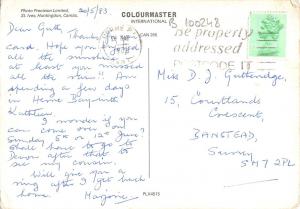 Photo Precision Limited,
St. Ives, Huntingdon, Cambs.
20/5/83
COLOURMASTER
INTERNATIONAL
B 100248
be properly
addressed
POSTCODE IT
Dear Gutty, Thanks for
card. Hope you
all the sunshine
at least you missed
all the rain!! Am
spending a few days
in Herne Bay with
Kathleen.
I wonder if you
can come over on
Sunday 5th or 12th June?
Shall have to go to
Devon after that to
see my cousin.
Will give you a
ring after I get back
home. Marjorie
Miss D. J Gutteridge,
15, Courtlands
Crescent,
BANSTEAD,
Surrey
SM7 2PL
PLX4515